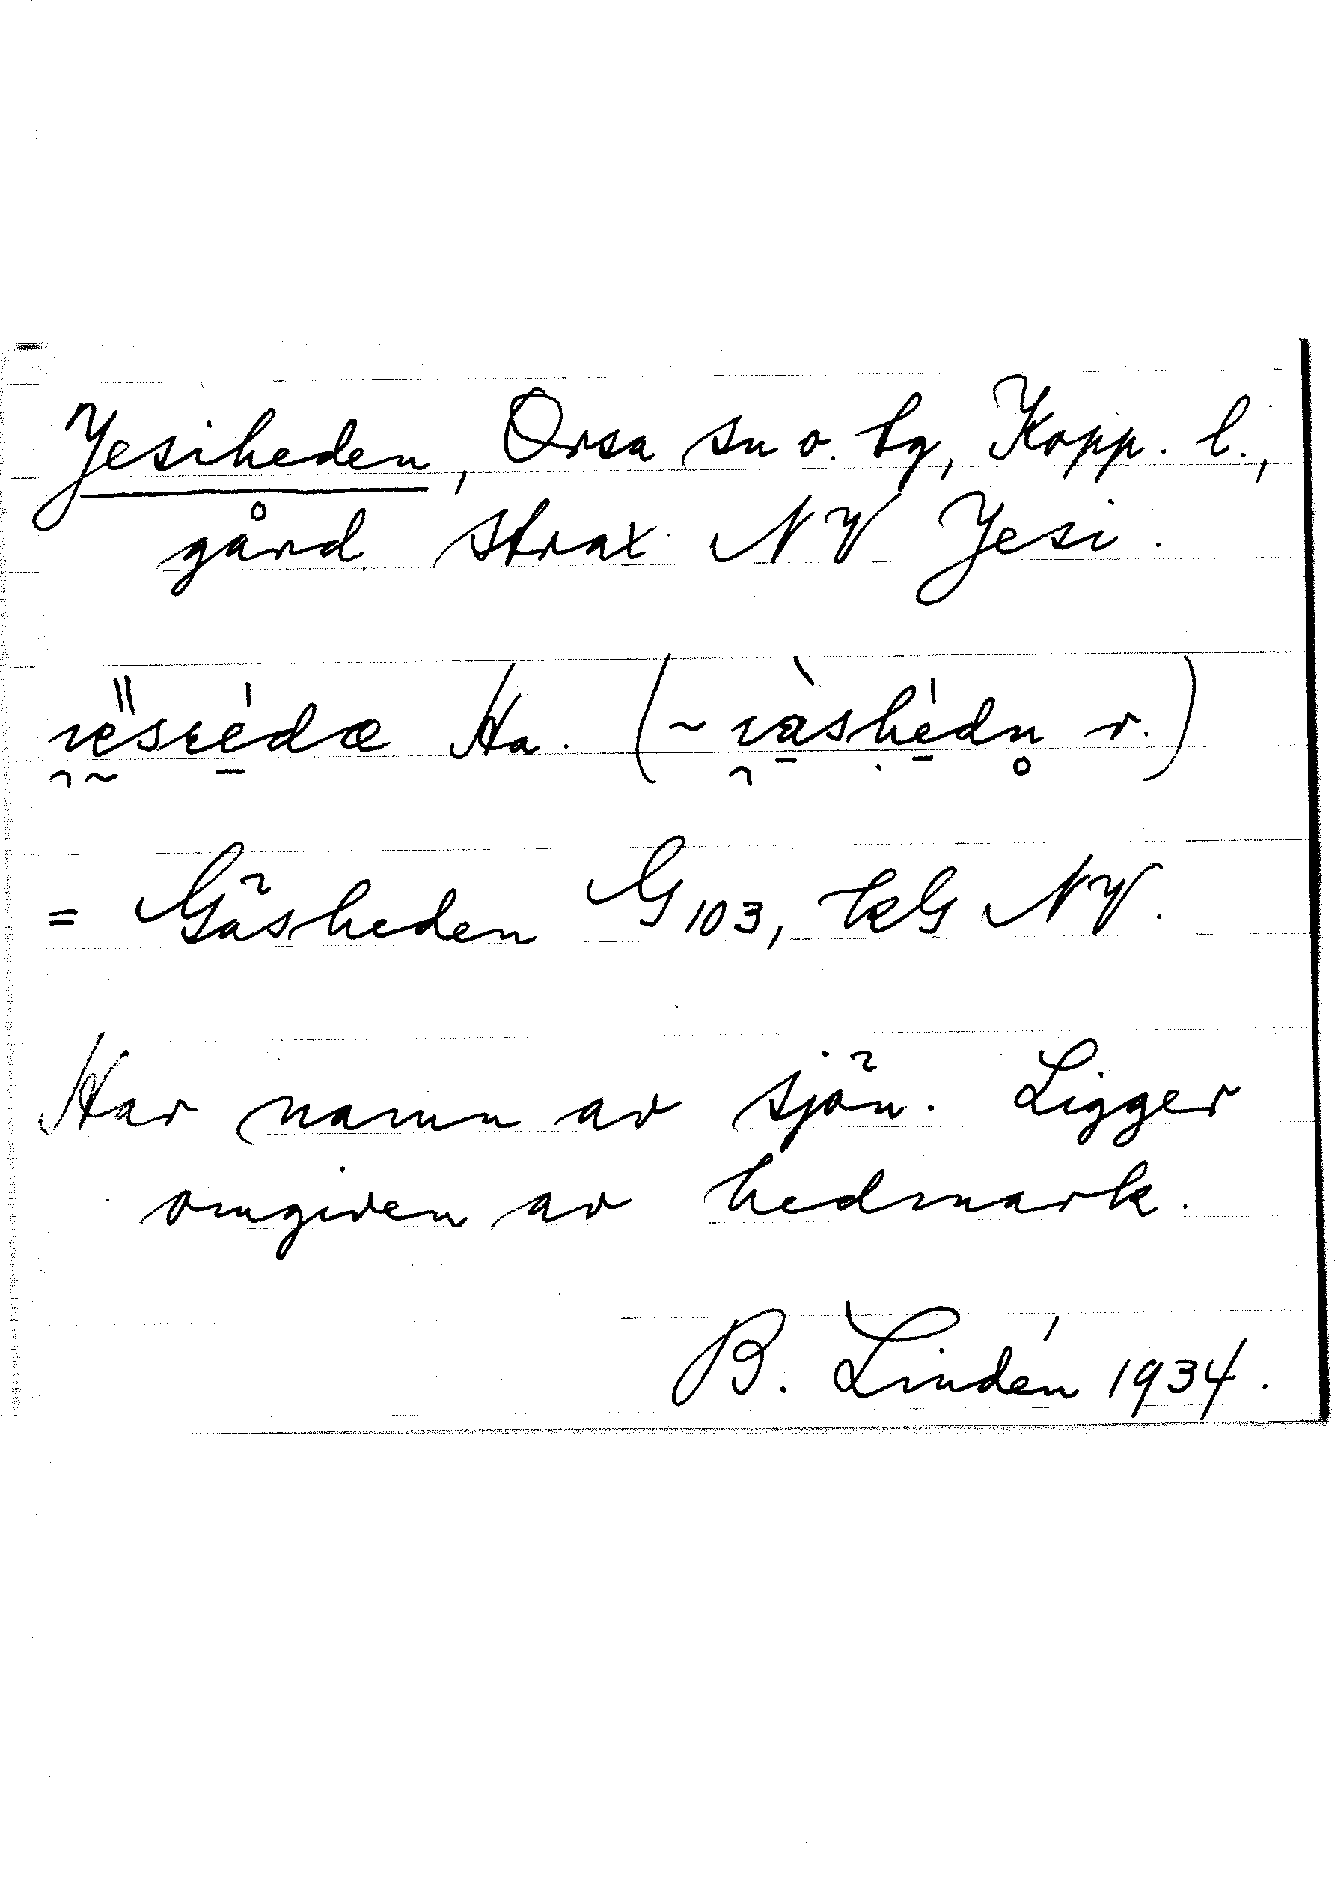 Jesiheden, Orsa sn o. tg, Kopp. l.,
gård strax NV Jesi.
Ha. (~ r.)
= Gäsheden G103, kG NV.
Har namn av sjön. Ligger
omgiven av hedmark.
B. Lindén 1934.